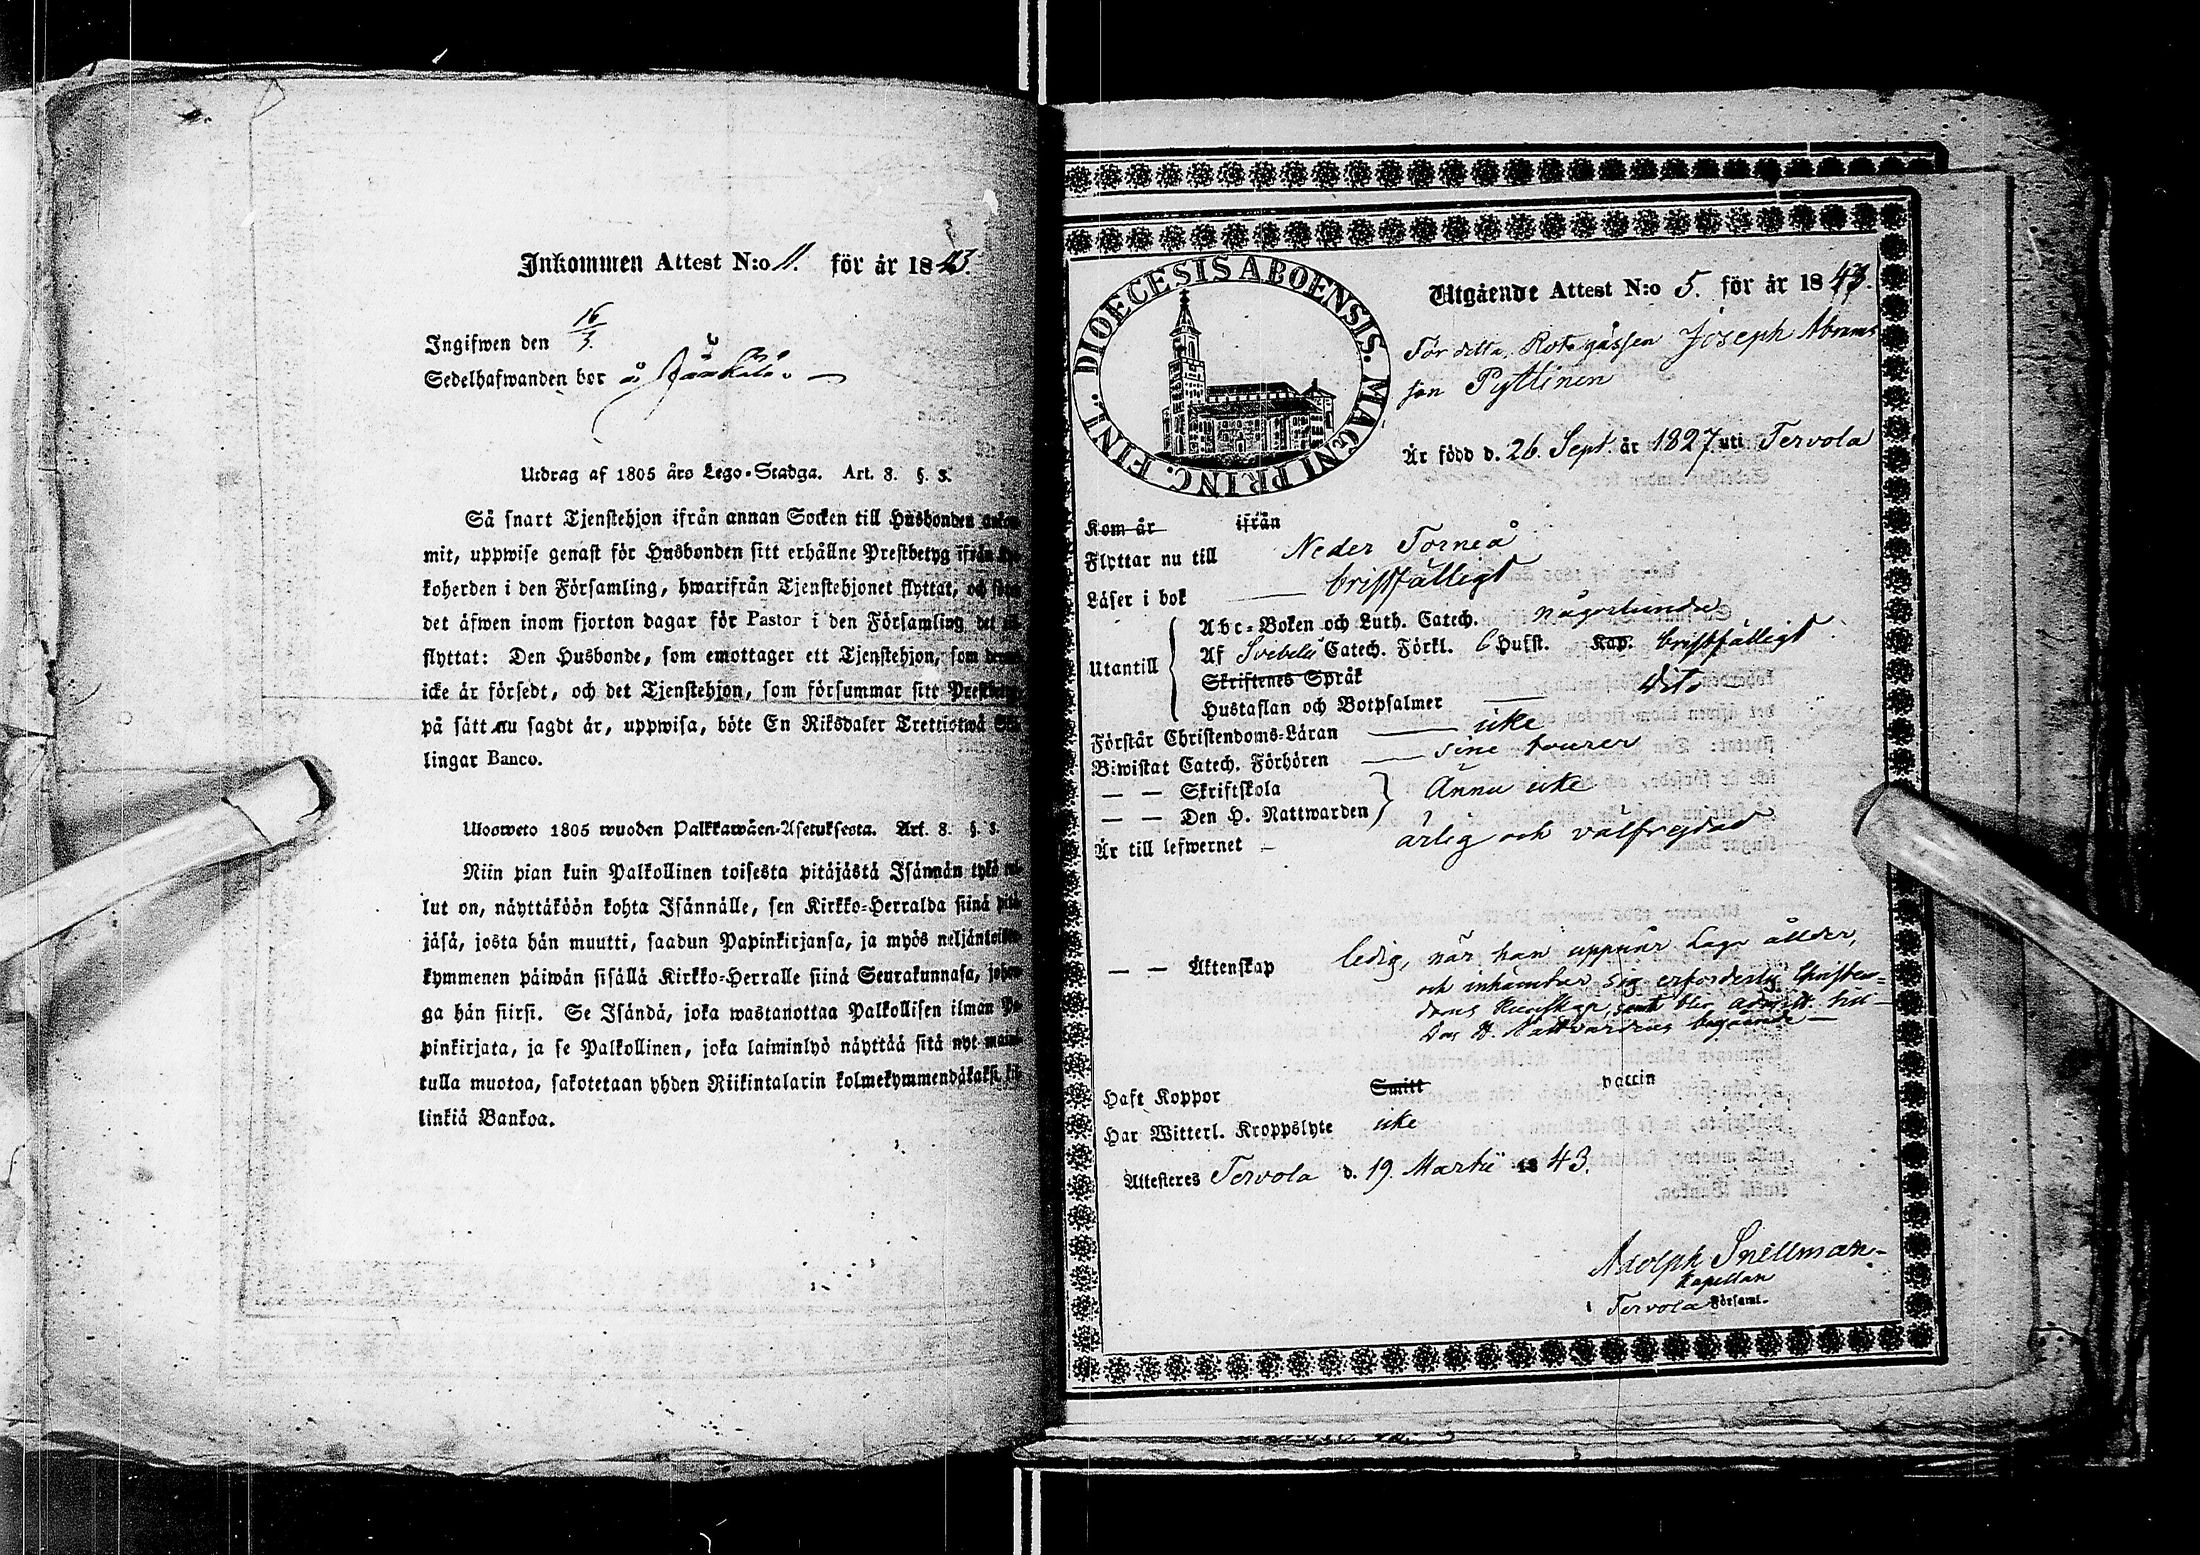 Inkommen Attest N:o 11. för år 1843.
Ingifwen den 16/3.
Sedelhafwanden bor å
Utdrag af 1805 års Lego-Stadga. Art. 8. §. 3.
Så snart Tjenstehjon ifrån annan Socken till Husbonden
mit, uppwise genast för Husbonden sitt erhållne Prestbetyg ifrån
koherden i den Församling, hwarifrån Tjenstehjonet flyttat, och
det äfwen inom fjorton dagar för Pastor i den Församling det
flyttat: Den Husbonde, som emottager ett Tjenstehjon, som
icke är försedt, och det Tjenstehjon, som försummar sitt
på sätt nu sagdt är, uppwisa, böte En Riksdaler Trettiotwå
lingar Banco.
Ulosweto 1805 wuoden Palkkawäen-Asetuksesta. Art. 8. §. 3.
Niin pian kuin Palkollinen toisesta pitäjästä Isännän tykö
lut on, näyttäköön kohta Isännälle, sen Kirkko-Herralda siinä
jäsä, josta hän muutti, saadun Papinkirjansa, ja myös
kymmenen päiwän sisällä Kirkko-Herralle siinä Seurakunnasa,
ga hän siirsi. Se Isändä, joka wastanottaa Palkollisen ilman
pinkirjata, ja se Palkollinen, joka laiminlyö näyttää sitä nyt
tulla muotoa, sakotetaan yhden Riikintalarin kolmekymmendäkaksi
linkiä Bankoa.
DIOECESIS ABOENSIS. MAGNI PRINC. FINL.
Utgående Attest N:o 5. för år 1843.
För detta Rotegåssen Joseph Abrams
son Pyttinen
Är född d. 26. Sept. år 1827. uti Tervola
Kom år ifrån
Flyttar nu till Neder Torneå
Läser i bok bristfälligt
Utantill
Abc-Boken och Luth. Catech. någorlunda
Af Svebelii Catech. Förkl. 6 Hufst. Kap. bristfälligt
Skriftenes Språk
Hustaflan och Botpsalmer dito
Förstår Christendoms-Läran icke
Biwistat Catech. Förhören sine tourer
— — Skriftskola
— — Den H. Nattwarden
Ännu icke
Är till lefwernet ärlig och välfrejdad
— — Äktenskap ledig, när han uppnår Laga ållder,
och inhämtar sig erforderlig Christen-
doms Kunskap, samt blir admitt. till
Den H. Nattvardens begående
Haft Koppor Smitt vaccin
Har Witterl. Kroppslyte icke
Attesteres Tervola d. 19. Martii 1843.
Adolph Snellman
Kapellan
i Tervola Församl.